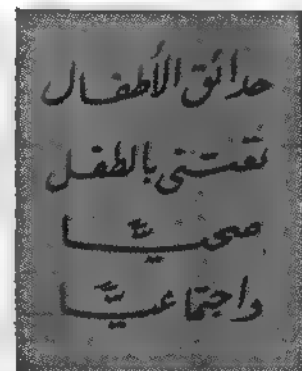 حدائق الأطفال
تعتني بالطفل
صحيًّا
واجتماعيًّا